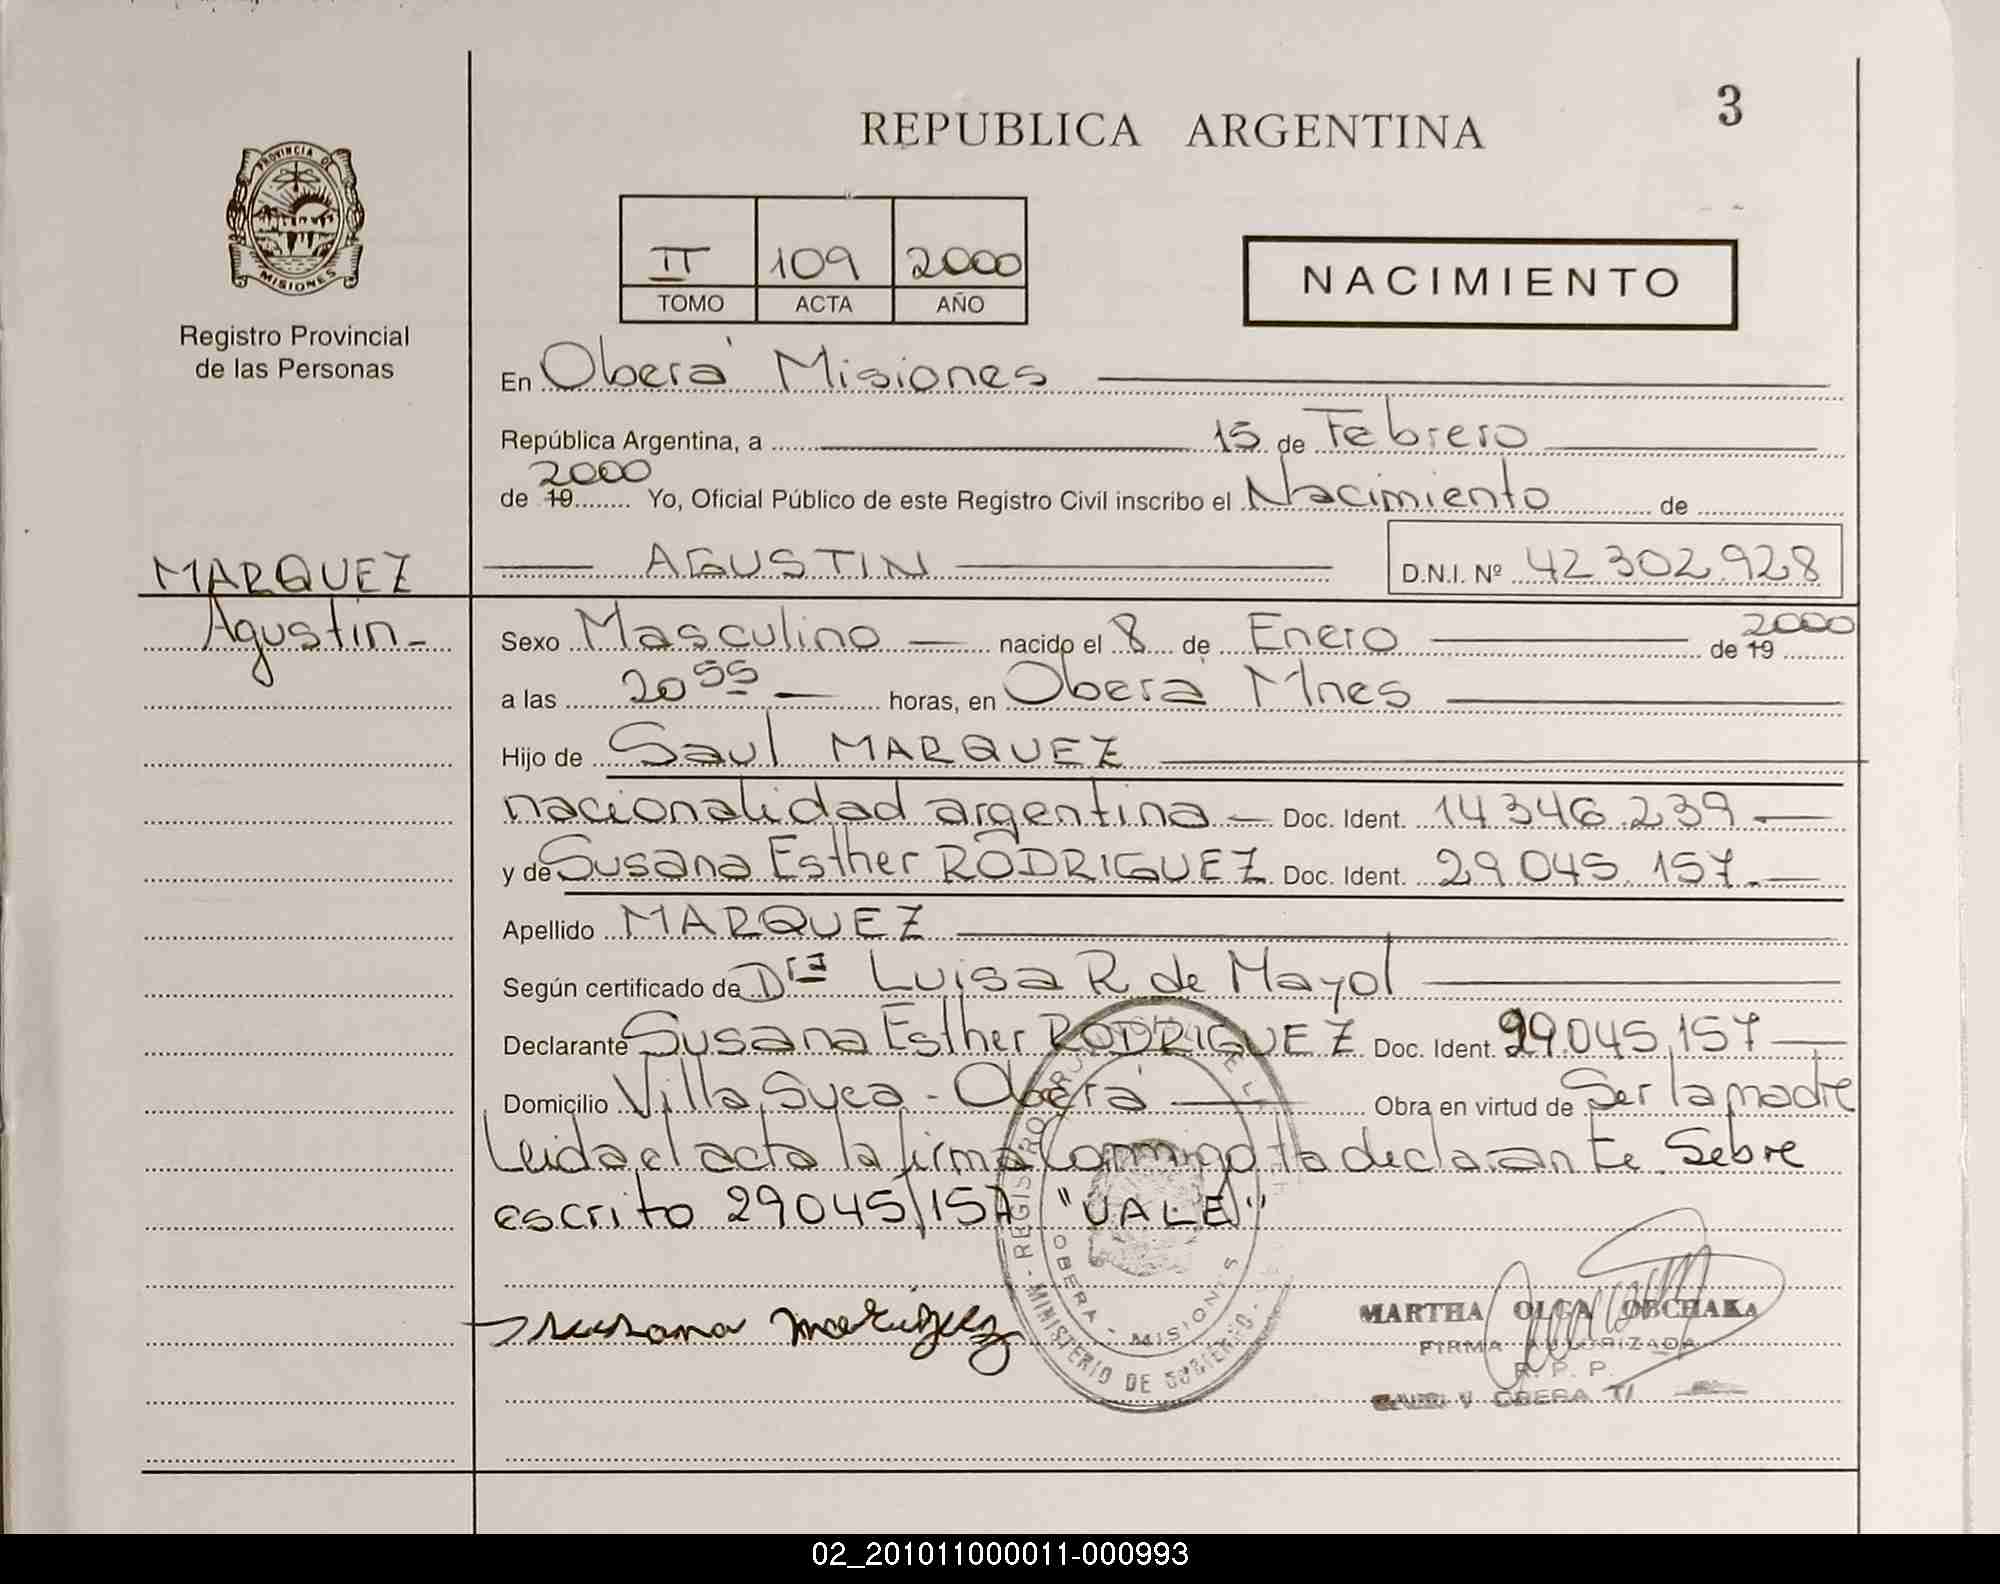 3
REPUBLICA ARGENTINA
PROVINCIA DE
MISIONES
Registro Provincial
de las Personas
II 109 2000
TOMO ACTA AÑO
NACIMIENTO
En Oberá Misiones
República Argentina, a 15 de Febrero
2000
de 19 Yo, Oficial Público de este Registro Civil inscribo el Nacimiento de
AGUSTIN D.N.I. Nº 42 302.928
MARQUEZ
Agustin-
Sexo Masculino nacido el 8 de Enero de 19 2000
a las 20 55 horas, en Oberá Mnes
Hijo de Saul MARQUEZ
nacionalidad argentina Doc. Ident. 14 346.239
y de Susana Esther RODRIGUEZ Doc. Ident. 29.045.157.
Apellido MARQUEZ
Según certificado de Dra Luisa R de Mayol
Declarante Susana Esther RODRIGUEZ Doc. Ident. 29.045.157
Domicilio Villa Syca - Oberá Obra en virtud de Ser la madre
Leida el acta la firma Conmigo la declarante. Sobre
escrito 29045/157 "VALE"
OBERA - MISIONES
MINISTERIO DE GOBIERNO
MARTHA OLGA OBCHAKA
FIRMA AUTORIZADA
R. P. P.
OBERA
02_201011000011-000993